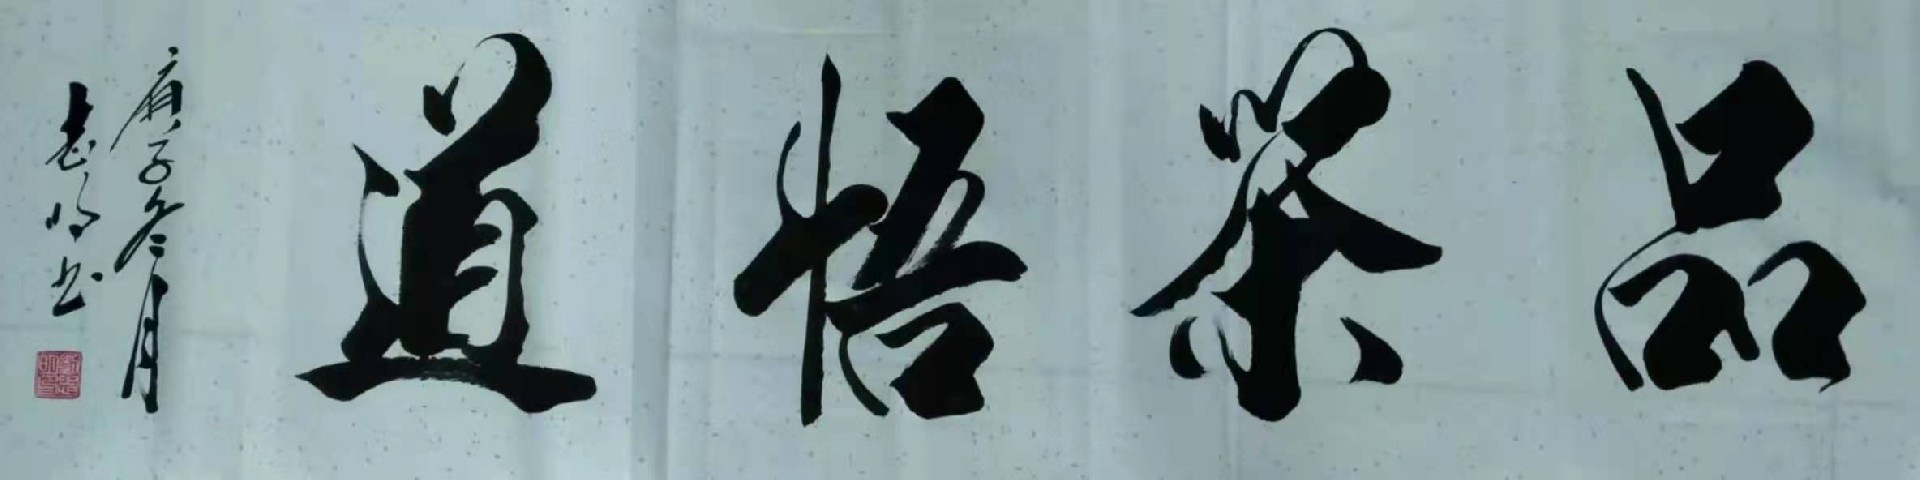 品茶悟道
庚子冬月
志明书